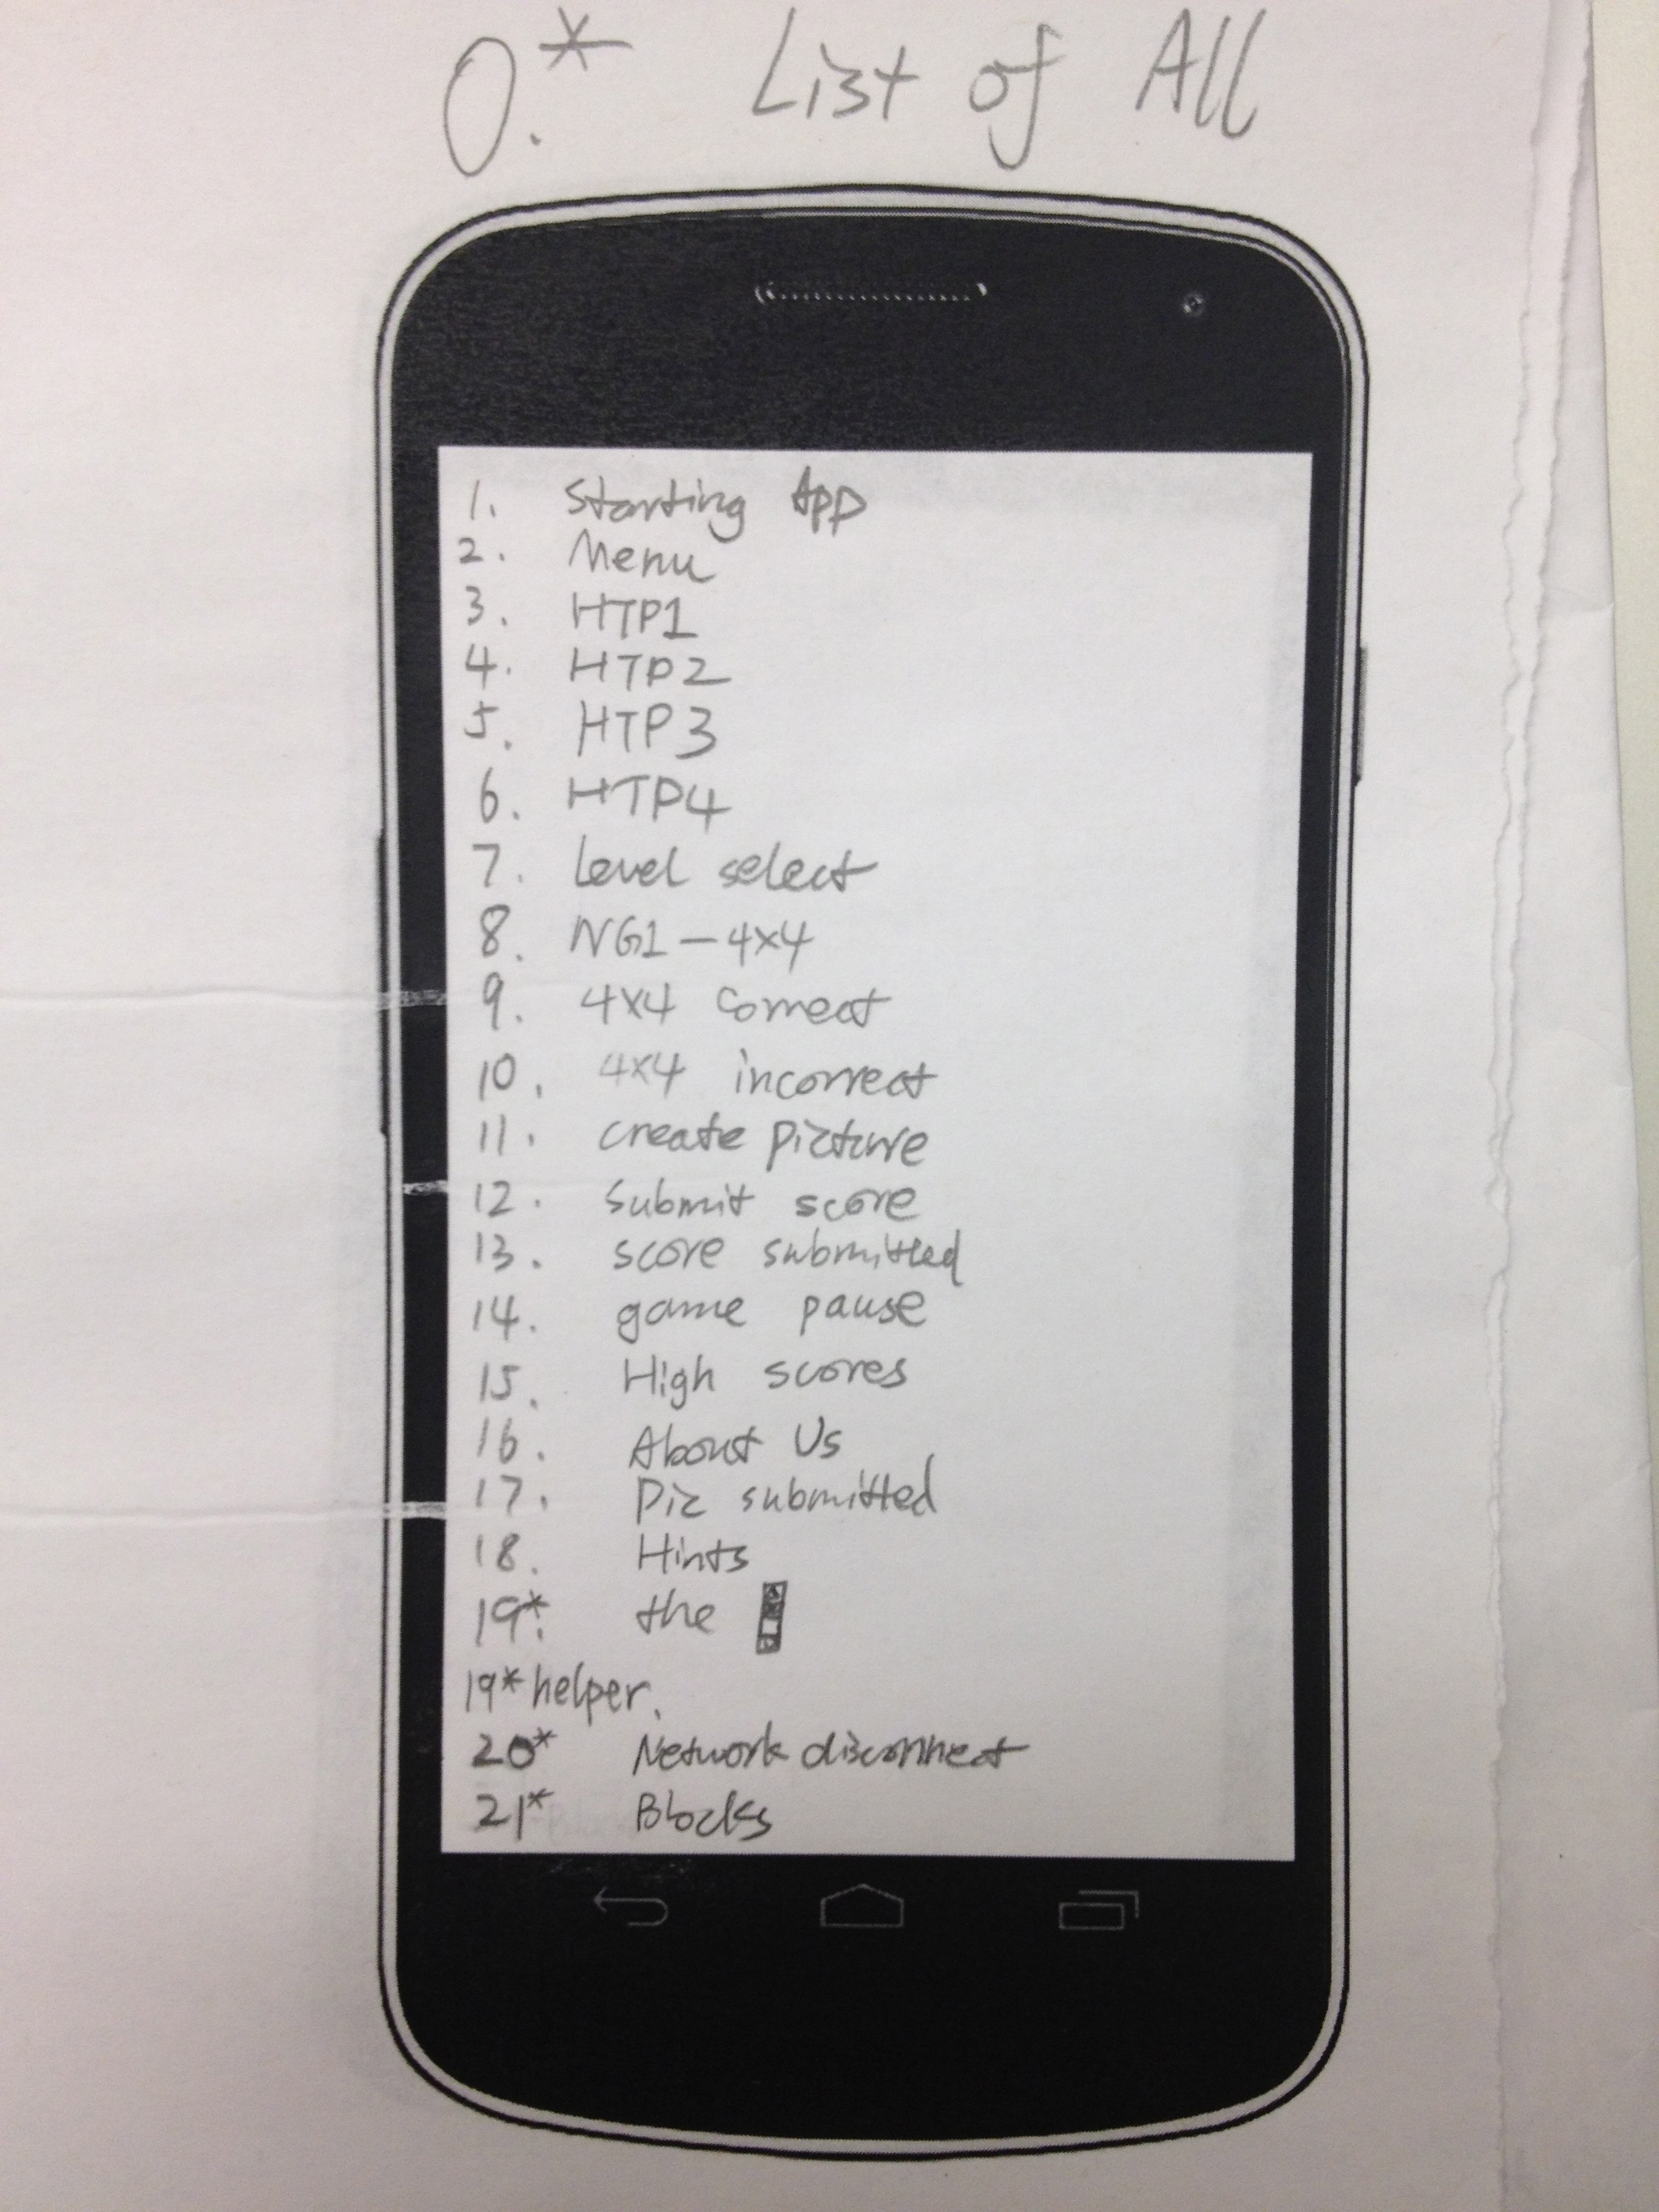 0.* List of All
1. Starting App
2. Menu
3. HTP1
4. HTP2
5. HTP3
6. HTP4
7. Level select
8. NG1 – 4x4
9. 4x4 Correct
10. 4x4 incorrect
11. create picture
12. Submit score
13. score submitted
14. game pause
15. High scores
16. About Us
17. Pic submitted
18. Hints
19.* the
19* helper.
20* Network disconnect
21* Blocks